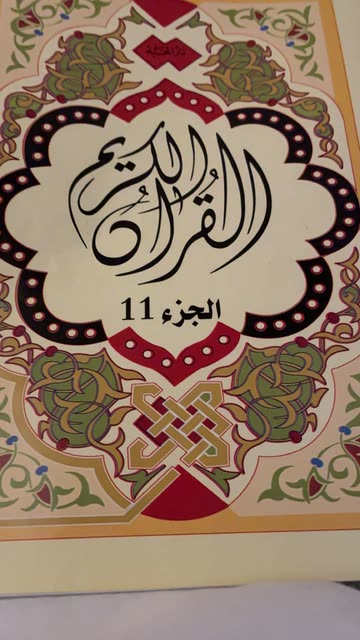 القرآن الكريم
الجزء 11